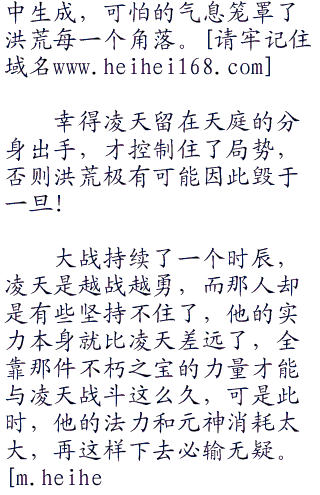 中生成，可怕的气息笼罩了
洪荒每一个角落。[请牢记住
域名www.heihei168.com]
幸得凌天留在天庭的分
身出手，才控制住了局势，
否则洪荒极有可能因此毁于
一旦！
大战持续了一个时辰，
凌天是越战越勇，而那人却
是有些坚持不住了，他的实
力本身就比凌天差远了，全
靠那件不朽之宝的力量才能
与凌天战斗这么久，可是此
时，他的法力和元神消耗太
大，再这样下去必输无疑。
[m.heihe